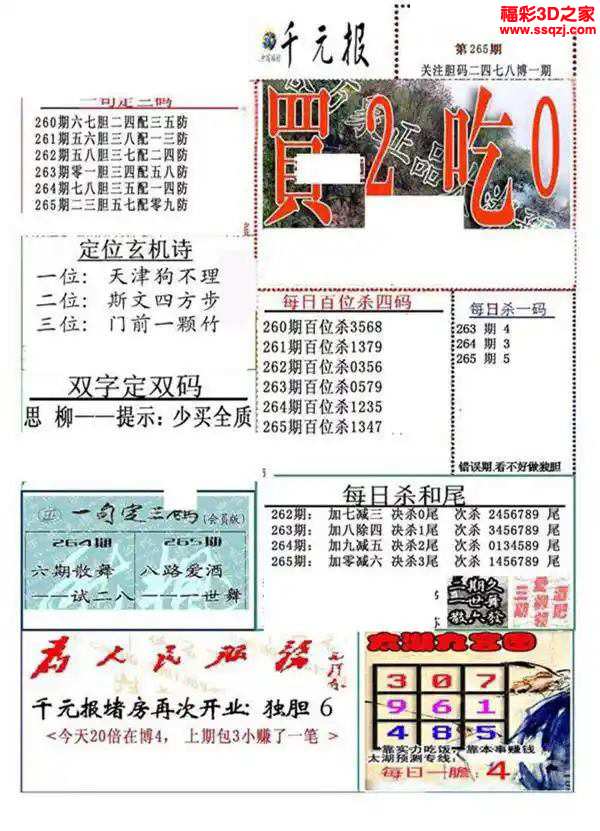 福彩3D之家
www.ssqzj.com
千元报
第265期
关注胆码二四七八博一期
一句定三码
260期六七胆二四配三五防
261期五六胆三八配一三防
262期五八胆三七配二四防
263期零一胆三四配五八防
264期七八胆三五配一四防
265期二三胆五七配零九防
買2吃0
正品
定位玄机诗
一位: 天津狗不理
二位: 斯文四方步
三位: 门前一颗竹
双字定双码
思 柳——提示: 少买全质
每日百位杀四码
260期百位杀3568
261期百位杀1379
262期百位杀0356
263期百位杀0579
264期百位杀1235
265期百位杀1347
每日杀一码
263 期 4
264 期 3
265 期 5
错误期,看不好做独胆
一句定三码(会员版)
264期 265期
六期散舞 八路爱酒
——试二八 ——世舞
每日杀和尾
262期: 加七减三 决杀0尾 次杀 2456789 尾
263期: 加八除四 决杀1尾 次杀 3456789 尾
264期: 加九减五 决杀2尾 次杀 0134589 尾
265期: 加零减六 决杀3尾 次杀 1456789 尾
为人民服务
千元报堵房再次开业: 独胆 6
<今天20倍在博4, 上期包3小赚了一笔 >
太湖九宫图
3 0 7
9 6 1
4 8 5
靠实力吃饭,靠本事赚钱
太湖预测专线:
每日一胆: 4